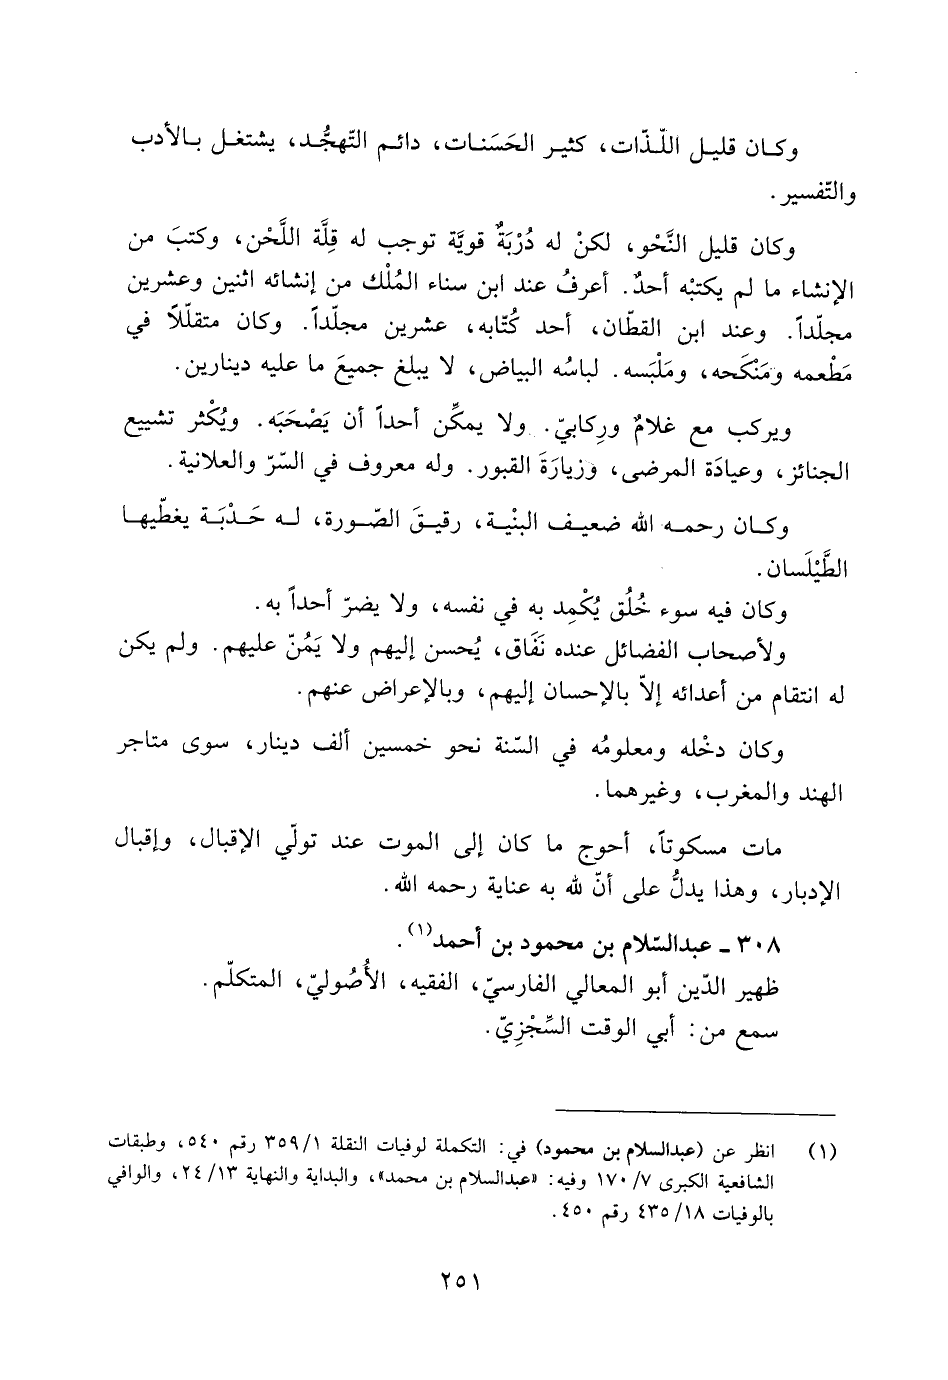 وكان قليل اللّذّات، كثير الحَسَنات، دائم التّهجُّد، يشتغل بالأدب
والتّفسير.
وكان قليل النَّحْو، لكنْ له دُرْبَةٌ قويَّة توجب له قِلَّة اللَّحْن، وكتبَ من
الإنشاء ما لم يكتبْه أحدٌ. أعرفُ عند ابن سناء المُلْك من إنشائه اثنين وعشرين
مجلّداً. وعند ابن القطّان، أحد كُتّابه، عشرين مجلّداً. وكان متقلّلاً في
مَطْعمه ومَنْكَحه، ومَلْبَسه. لباسُه البياض، لا يبلغ جميعَ ما عليه دينارين.
ويركب مع غلامٌ ورِكابيّ. ولا يمكِّن أحداً أن يَصْحَبَه. ويُكْثر تشييع
الجنائز، وعيادَة المرضى، وزيارَةَ القبور. وله معروف في السّرّ والعلانية.
وكان رحمه الله ضعيف البنْية، رقيقَ الصّورة، له حَدْبَة يغطّيها
الطَّيْلَسان.
وكان فيه سوء خُلُق يُكْمِد به في نفسه، ولا يضرّ أحداً به.
ولأصحاب الفضائل عنده نَفَاق، يُحسن إليهم ولا يَمُنّ عليهم. ولم يكن
له انتقام من أعدائه إلاّ بالإحسان إليهم، وبالإعراض عنهم.
وكان دخْله ومعلومُه في السّنة نحو خمسين ألف دينار، سوى متاجر
الهند والمغرب، وغيرهما.
مات مسكوتاً، أحوج ما كان إلى الموت عند تولّي الإقبال، وإقبال
الإدبار، وهذا يدلُّ على أنّ لله به عناية رحمه الله.
٣٠٨ ـ عبدالسّلام بن محمود بن أحمد(١).
ظهير الدّين أبو المعالي الفارسيّ، الفقيه، الأُصُوليّ، المتكلّم.
سمع من: أبي الوقت السِّجْزِيّ.
(١) انظر عن (عبدالسلام بن محمود) في: التكملة لوفيات النقلة ٣٥٩/١ رقم ٥٤٠، وطبقات
الشافعية الكبرى ١٧٠/٧ وفيه: «عبدالسلام بن محمد»، والبداية والنهاية ٢٤/١٣، والوافي
بالوفيات ٤٣٥/١٨ رقم ٤٥٠.
٢٥١